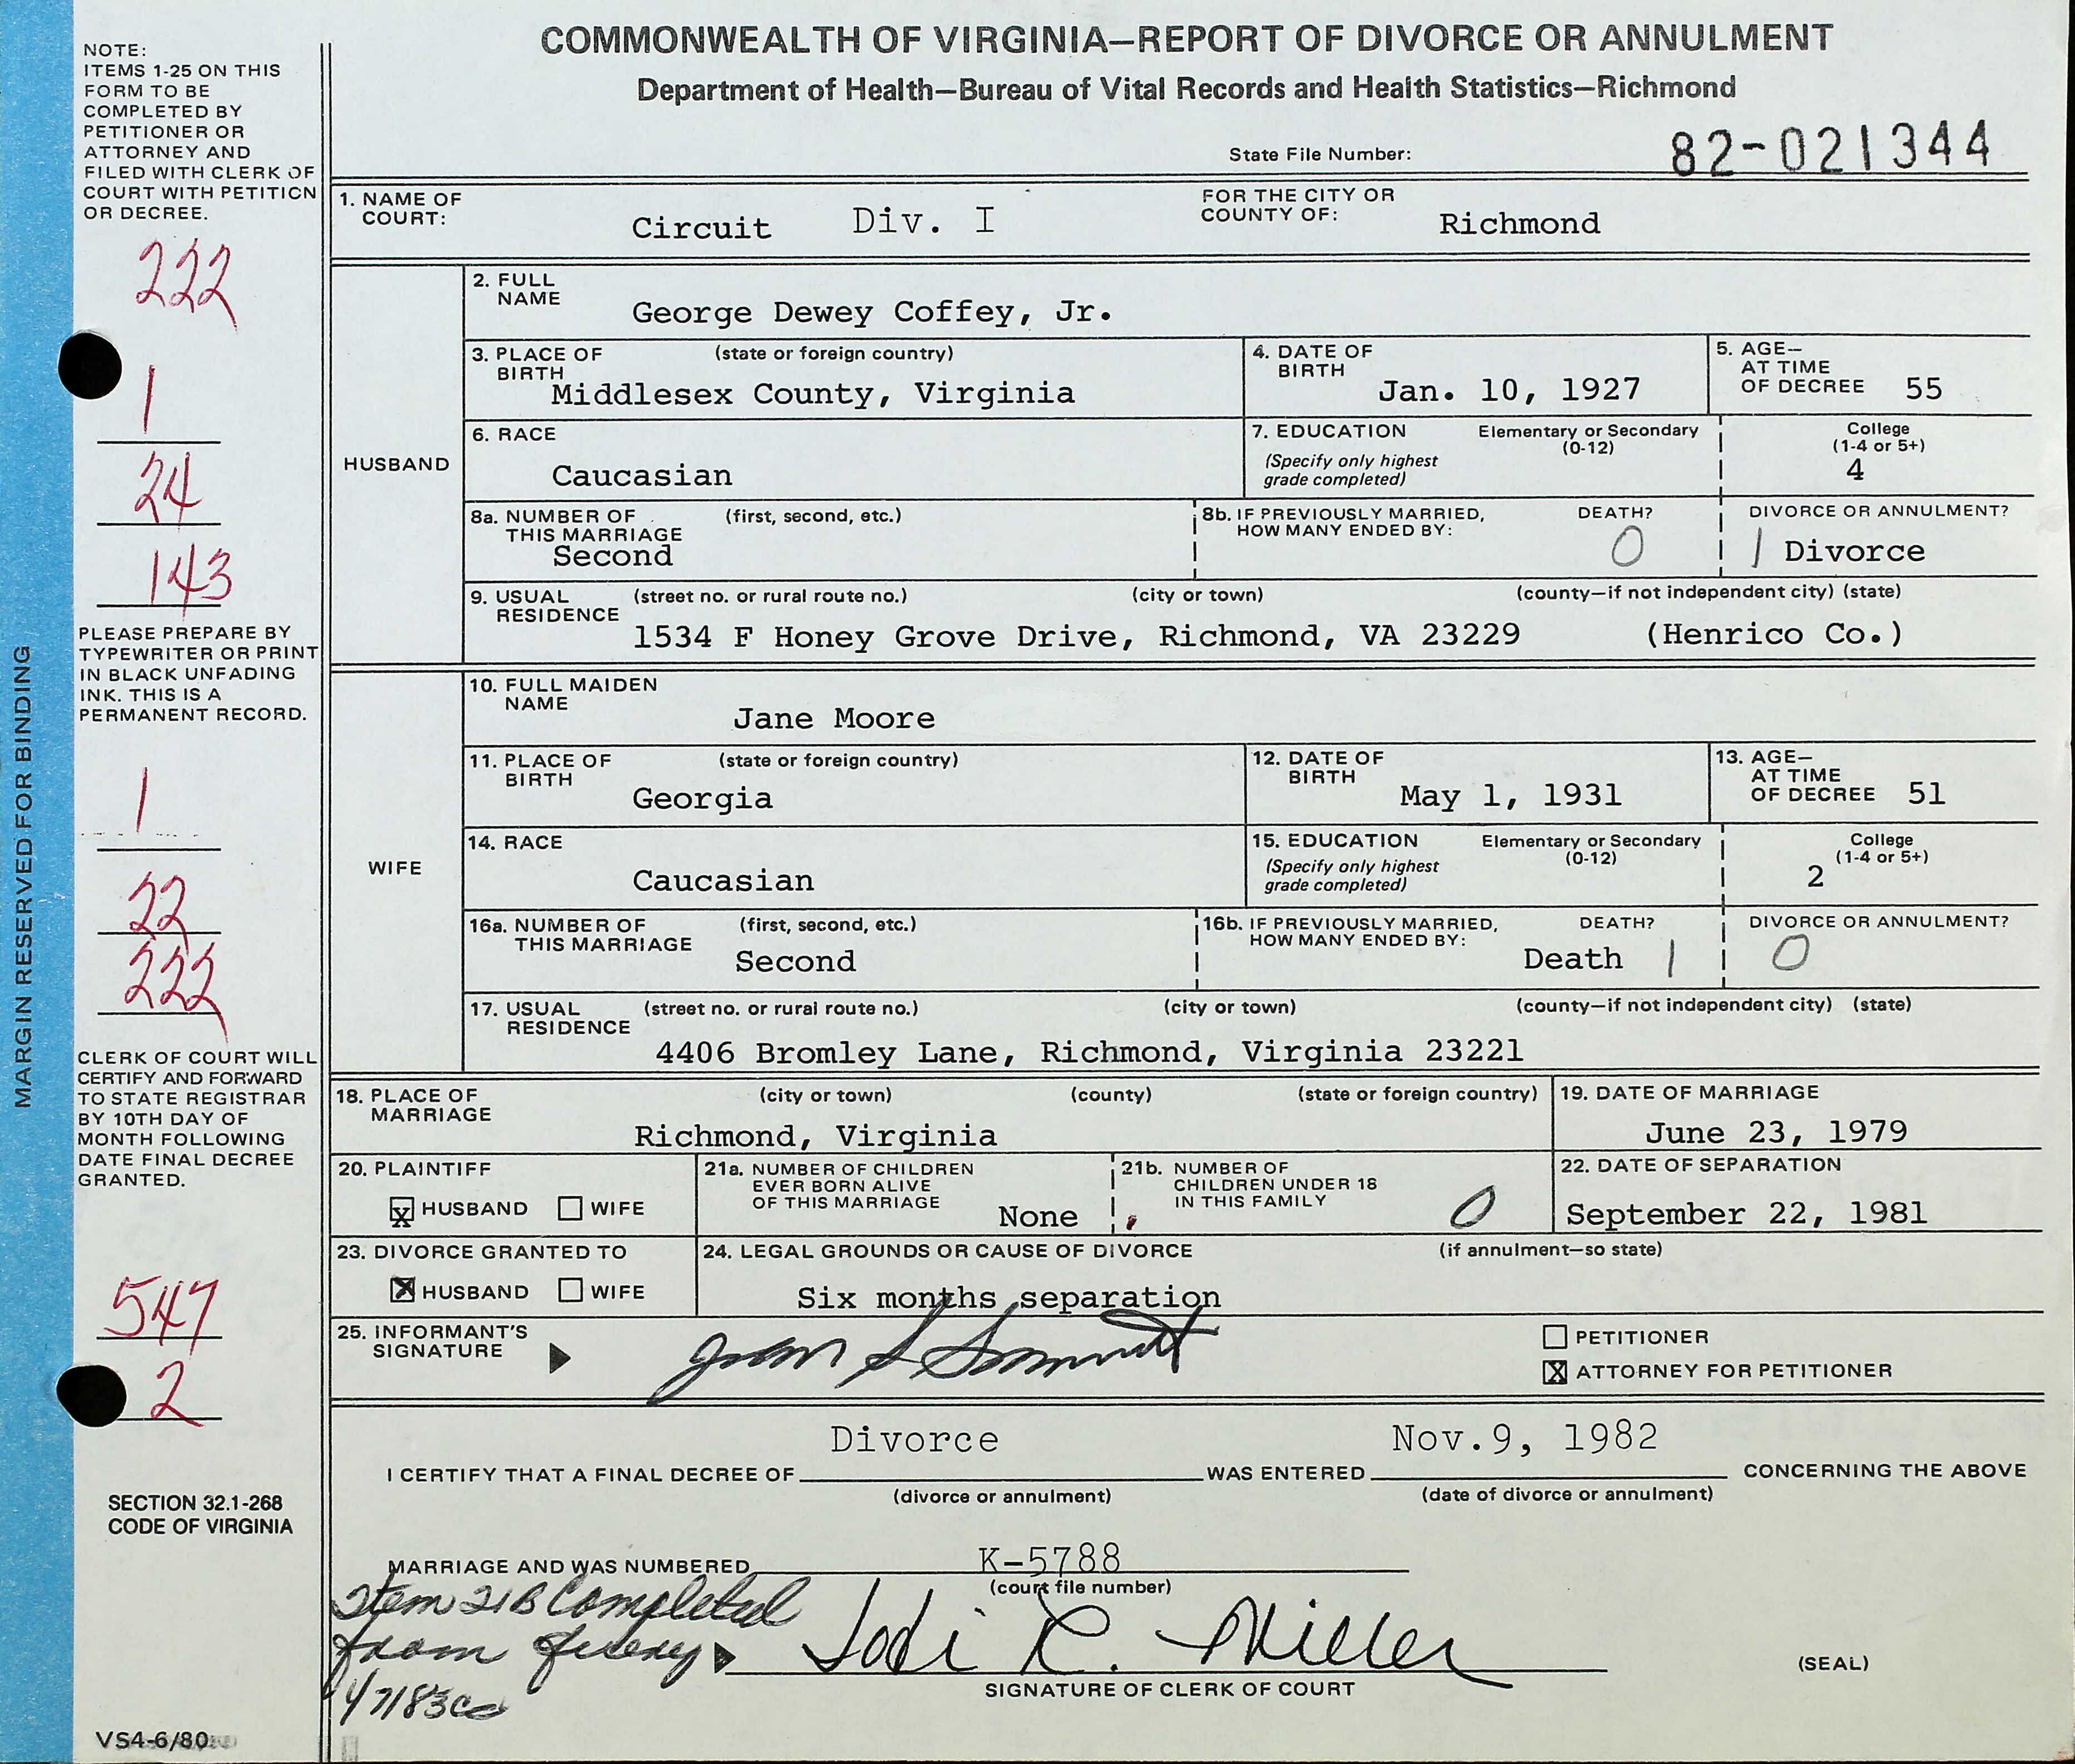 COMMONWEALTH OF VIRGINIA—REPORT OF DIVORCE OR ANNULMENT
Department of Health—Bureau of Vital Records and Health Statistics—Richmond
State File Number: 82-021344
NOTE:
ITEMS 1-25 ON THIS
FORM TO BE
COMPLETED BY
PETITIONER OR
ATTORNEY AND
FILED WITH CLERK OF
COURT WITH PETITION
OR DECREE.
222
1
24
143
PLEASE PREPARE BY
TYPEWRITER OR PRINT
IN BLACK UNFADING
INK. THIS IS A
PERMANENT RECORD.
1
22
222
CLERK OF COURT WILL
CERTIFY AND FORWARD
TO STATE REGISTRAR
BY 10TH DAY OF
MONTH FOLLOWING
DATE FINAL DECREE
GRANTED.
547
2
SECTION 32.1-268
CODE OF VIRGINIA
VS4-6/80
MARGIN RESERVED FOR BINDING
1. NAME OF COURT: Circuit Div. I FOR THE CITY OR COUNTY OF: Richmond
HUSBAND
2. FULL NAME George Dewey Coffey, Jr.
3. PLACE OF BIRTH (state or foreign country) Middlesex County, Virginia
4. DATE OF BIRTH Jan. 10, 1927
5. AGE— AT TIME OF DECREE 55
6. RACE Caucasian
7. EDUCATION (Specify only highest grade completed) Elementary or Secondary (0-12) College (1-4 or 5+) 4
8a. NUMBER OF THIS MARRIAGE (first, second, etc.) Second
8b. IF PREVIOUSLY MARRIED, HOW MANY ENDED BY: DEATH? 0 DIVORCE OR ANNULMENT? 1 Divorce
9. USUAL RESIDENCE (street no. or rural route no.) (city or town) (county—if not independent city) (state)
1534 F Honey Grove Drive, Richmond, VA 23229 (Henrico Co.)
WIFE
10. FULL MAIDEN NAME Jane Moore
11. PLACE OF BIRTH (state or foreign country) Georgia
12. DATE OF BIRTH May 1, 1931
13. AGE— AT TIME OF DECREE 51
14. RACE Caucasian
15. EDUCATION (Specify only highest grade completed) Elementary or Secondary (0-12) College (1-4 or 5+) 2
16a. NUMBER OF THIS MARRIAGE (first, second, etc.) Second
16b. IF PREVIOUSLY MARRIED, HOW MANY ENDED BY: DEATH? Death 1 DIVORCE OR ANNULMENT? 0
17. USUAL RESIDENCE (street no. or rural route no.) (city or town) (county—if not independent city) (state)
4406 Bromley Lane, Richmond, Virginia 23221
18. PLACE OF MARRIAGE (city or town) (county) (state or foreign country) Richmond, Virginia
19. DATE OF MARRIAGE June 23, 1979
20. PLAINTIFF X HUSBAND WIFE
21a. NUMBER OF CHILDREN EVER BORN ALIVE OF THIS MARRIAGE None
21b. NUMBER OF CHILDREN UNDER 18 IN THIS FAMILY 0
22. DATE OF SEPARATION September 22, 1981
23. DIVORCE GRANTED TO X HUSBAND WIFE
24. LEGAL GROUNDS OR CAUSE OF DIVORCE (if annulment—so state) Six months separation
25. INFORMANT'S SIGNATURE
PETITIONER
X ATTORNEY FOR PETITIONER
I CERTIFY THAT A FINAL DECREE OF Divorce WAS ENTERED Nov.9, 1982 CONCERNING THE ABOVE
(divorce or annulment) (date of divorce or annulment)
MARRIAGE AND WAS NUMBERED K-5788
(court file number)
Item 21B Completed
from query
1/7/83
Jodi R. Miller
SIGNATURE OF CLERK OF COURT
(SEAL)